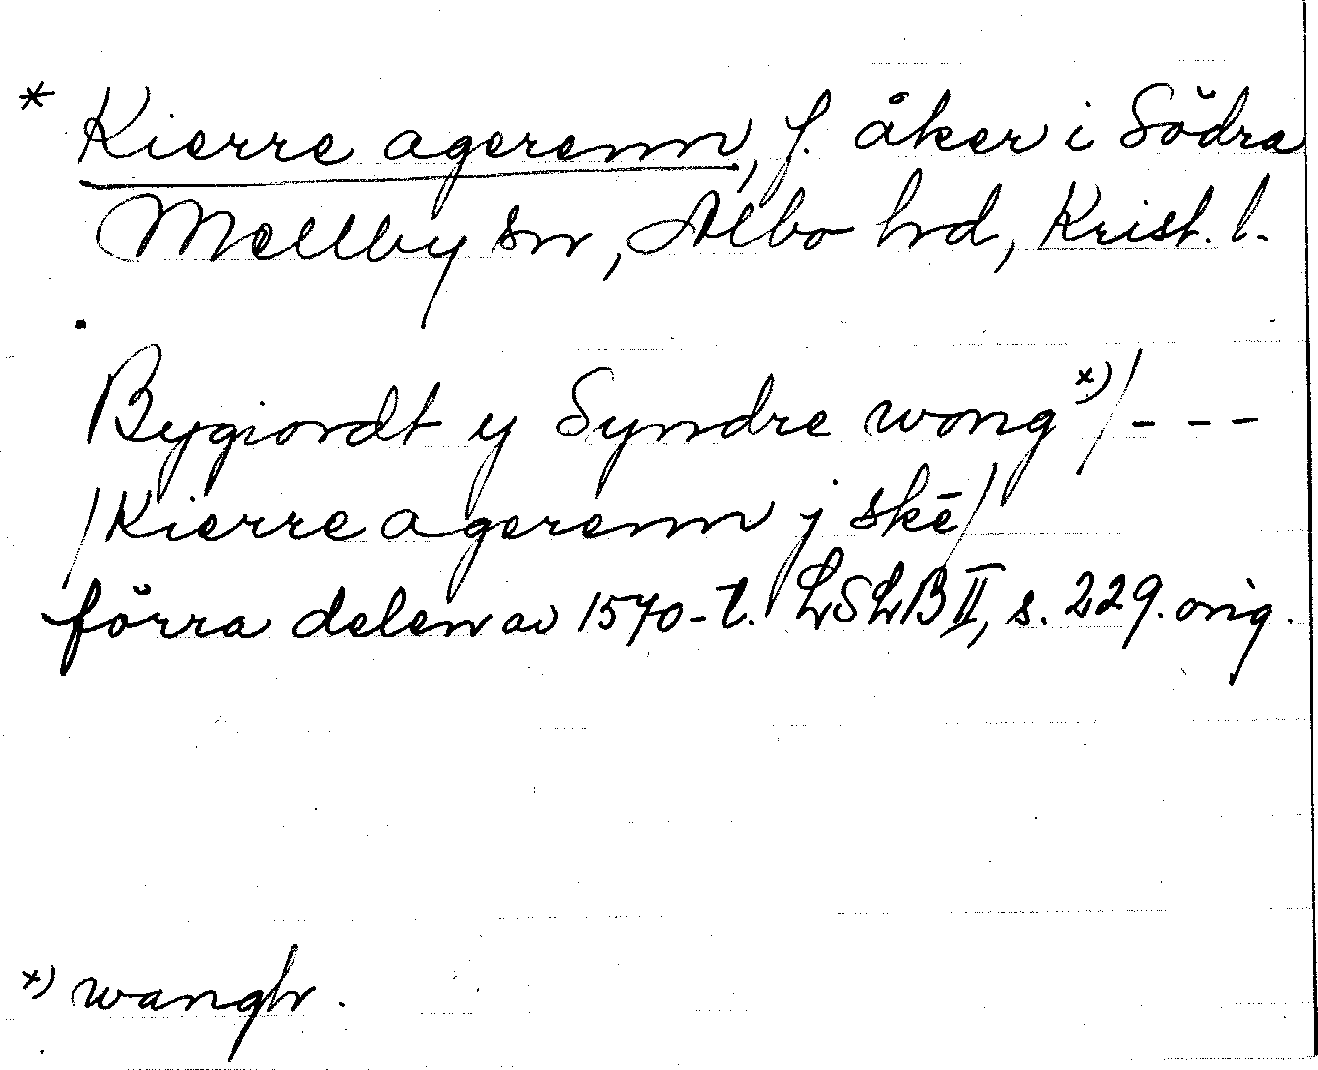 * Kierre agerenn, f. åker i Södra
Mellby sn, Albo hd, Krist. l.
Bygiordt y Syndre wong x) / - - -
/ Kierre agerenn j skē /
förra delen av 1570-t. LSLB II, s. 229. orig.
x) wangh.